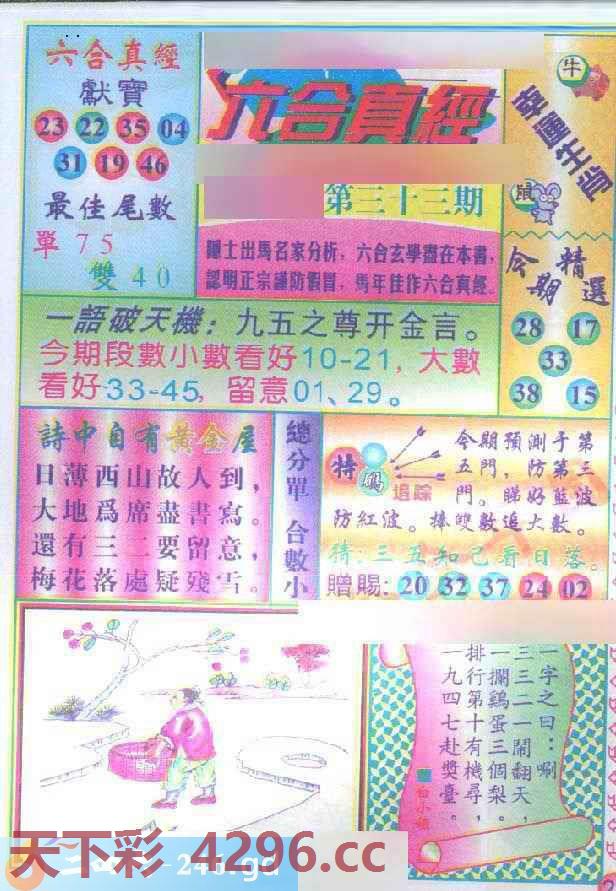 六合真經
獻寶
23 22 35 04
31 19 46
最佳尾數
單 7 5
雙 4 0
六合真經
第三十三期
隱士出馬名家分析，六合玄學盡在本書，
認明正宗謹防假冒，馬年佳作六合真經。
牛
幸運生肖
鼠
今期精選
28 17
33
38 15
一語破天機：九五之尊开金言。
今期段數小數看好10-21，大數
看好33-45，留意01、29。
詩中自有黃金屋
日薄西山故人到，
大地爲席盡書寫。
還有三二要留意，
梅花落處疑殘雪。
總分單 合數小
特 碼
追踪
今期預測于第
五門，防第三
門。睇好藍波
防紅波。捧雙數追大數。
猜：三五知己看日落。
贈賜：20 32 37 24 02
一字之曰：唰
三三二一鬧翻天，
一攔鷄蛋三個梨。
排行第十有機尋，
一九四七赴獎臺。
白小姐
天下彩 4296.cc